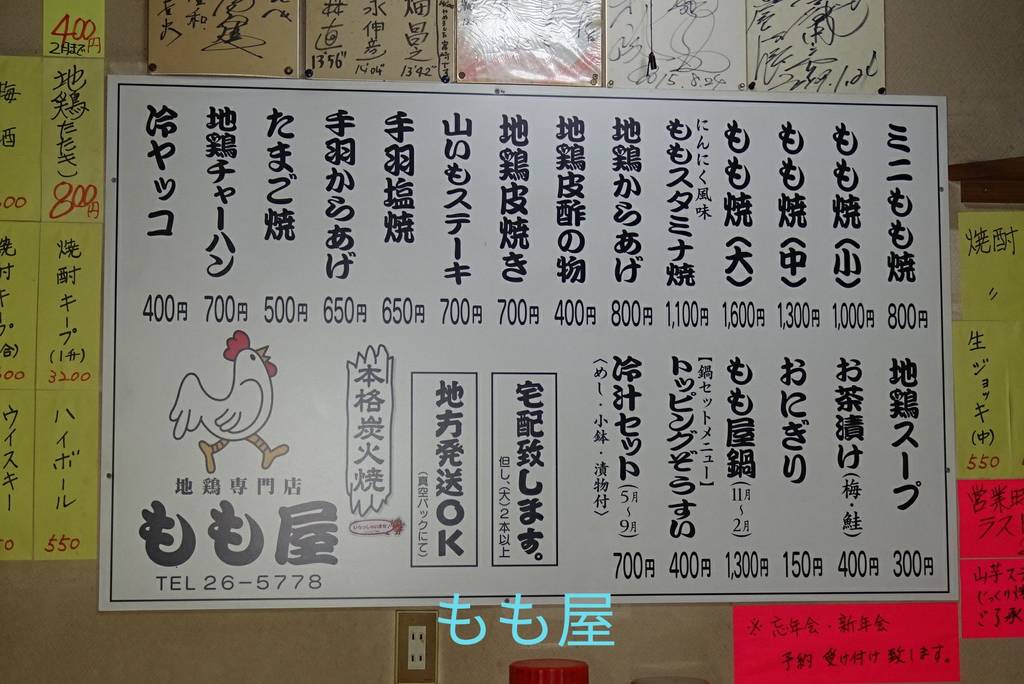 400円
2月まで
地鶏たたき
800円
焼酎キープ
(1升)
3200
ハイボール
550
ウイスキー
13'56"
14'04"
13'42"
2015.8.24
ミニもも焼
800円
もも焼(小)
1,000円
もも焼(中)
1,300円
もも焼(大)
1,600円
にんにく風味
ももスタミナ焼
1,100円
地鶏からあげ
800円
地鶏皮酢の物
400円
地鶏皮焼き
700円
山いもステーキ
700円
手羽塩焼
650円
手羽からあげ
650円
たまご焼
500円
地鶏チャーハン
700円
冷ヤッコ
400円
地鶏スープ
300円
お茶漬け(梅・鮭)
400円
おにぎり
150円
もも屋鍋(11月〜2月)
1,300円
【鍋セットメニュー】
トッピングぞうすい
400円
冷汁セット(5月〜9月)
〈めし・小鉢・漬物付〉
700円
宅配致します。
但し、(大)2本以上
地方発送OK
(真空パックにて)
本格炭火焼
地鶏専門店
もも屋
TEL 26-5778
焼酎
〃
生ジョッキ(中)
550
営業
ラスト
山芋ス
じっくり焼
ご了承
※忘年会・新年会
予約 受け付け致します。
もも屋